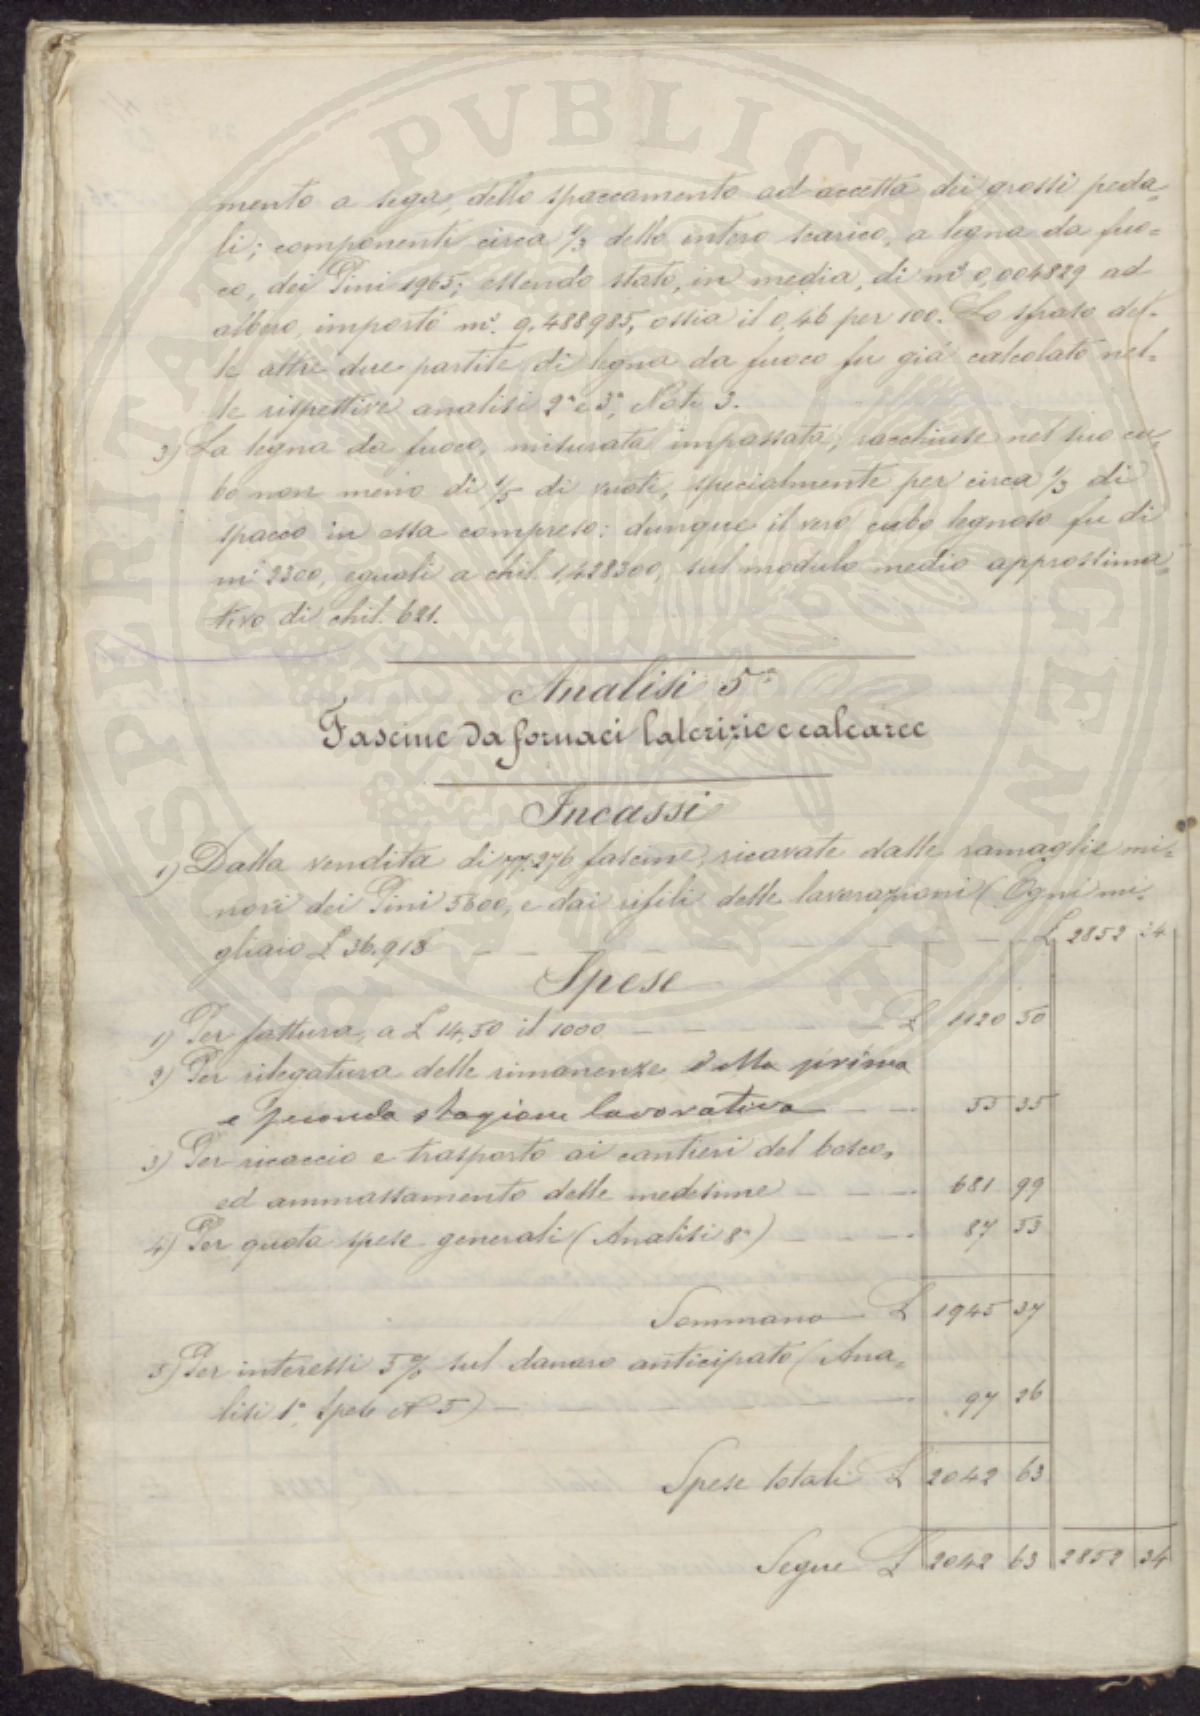 mento a sega, dello spaccamento ad accetta dei grossi peda-
li; componenti circa 1/3 dello intero scarico, a legna da fuo-
co, dei Pini 1965; essendo stato, in media, di m³ 0,004829 ad
albero, importò m³. 9,488985, ossia il 0,46 per 100. Lo sfraso del-
le altre due partite di legna da fuoco fu già calcolato nel-
le rispettive analisi 2ª e 3ª, Note 3.
3) La legna da fuoco, misurata impassata, racchiuse nel suo cu-
bo non meno di 1/5 di vuoti, specialmente per circa 1/3 di
spacco in essa compreso: dunque il vero cubo legnoso fu di
m³ 2300, eguali a chil. 1,428300, sul modulo medio approssima-
tivo di chil. 621.
Analisi 5ª
Fascine da fornaci laterizie e calcaree
Incassi
1) Dalla vendita di 77.276 fascine, ricavate dalle ramaglie mi-
nori dei Pini 5600, e dai rifili delle lavorazioni (Ogni mi-
gliaio £ 36.918 £ 2852 34
Spese
1) Per fattura, a £ 14,50 il 1000 £ 1120 50
2) Per rilegatura delle rimanenze della prima
e seconda stagione lavorativa 55 35
3) Per ricaccio e trasporto ai cantieri del bosco,
ed ammassamento delle medesime 681 99
4) Per quota spese generali (Analisi 8ª) 87 53
Sommano £ 1945 37
5) Per interessi 5 % sul danaro anticipato (Ana-
lisi 1ª, Spese N° 5) 97 26
Spese totali £ 2042 63
Segue £ 2042 63 2852 34